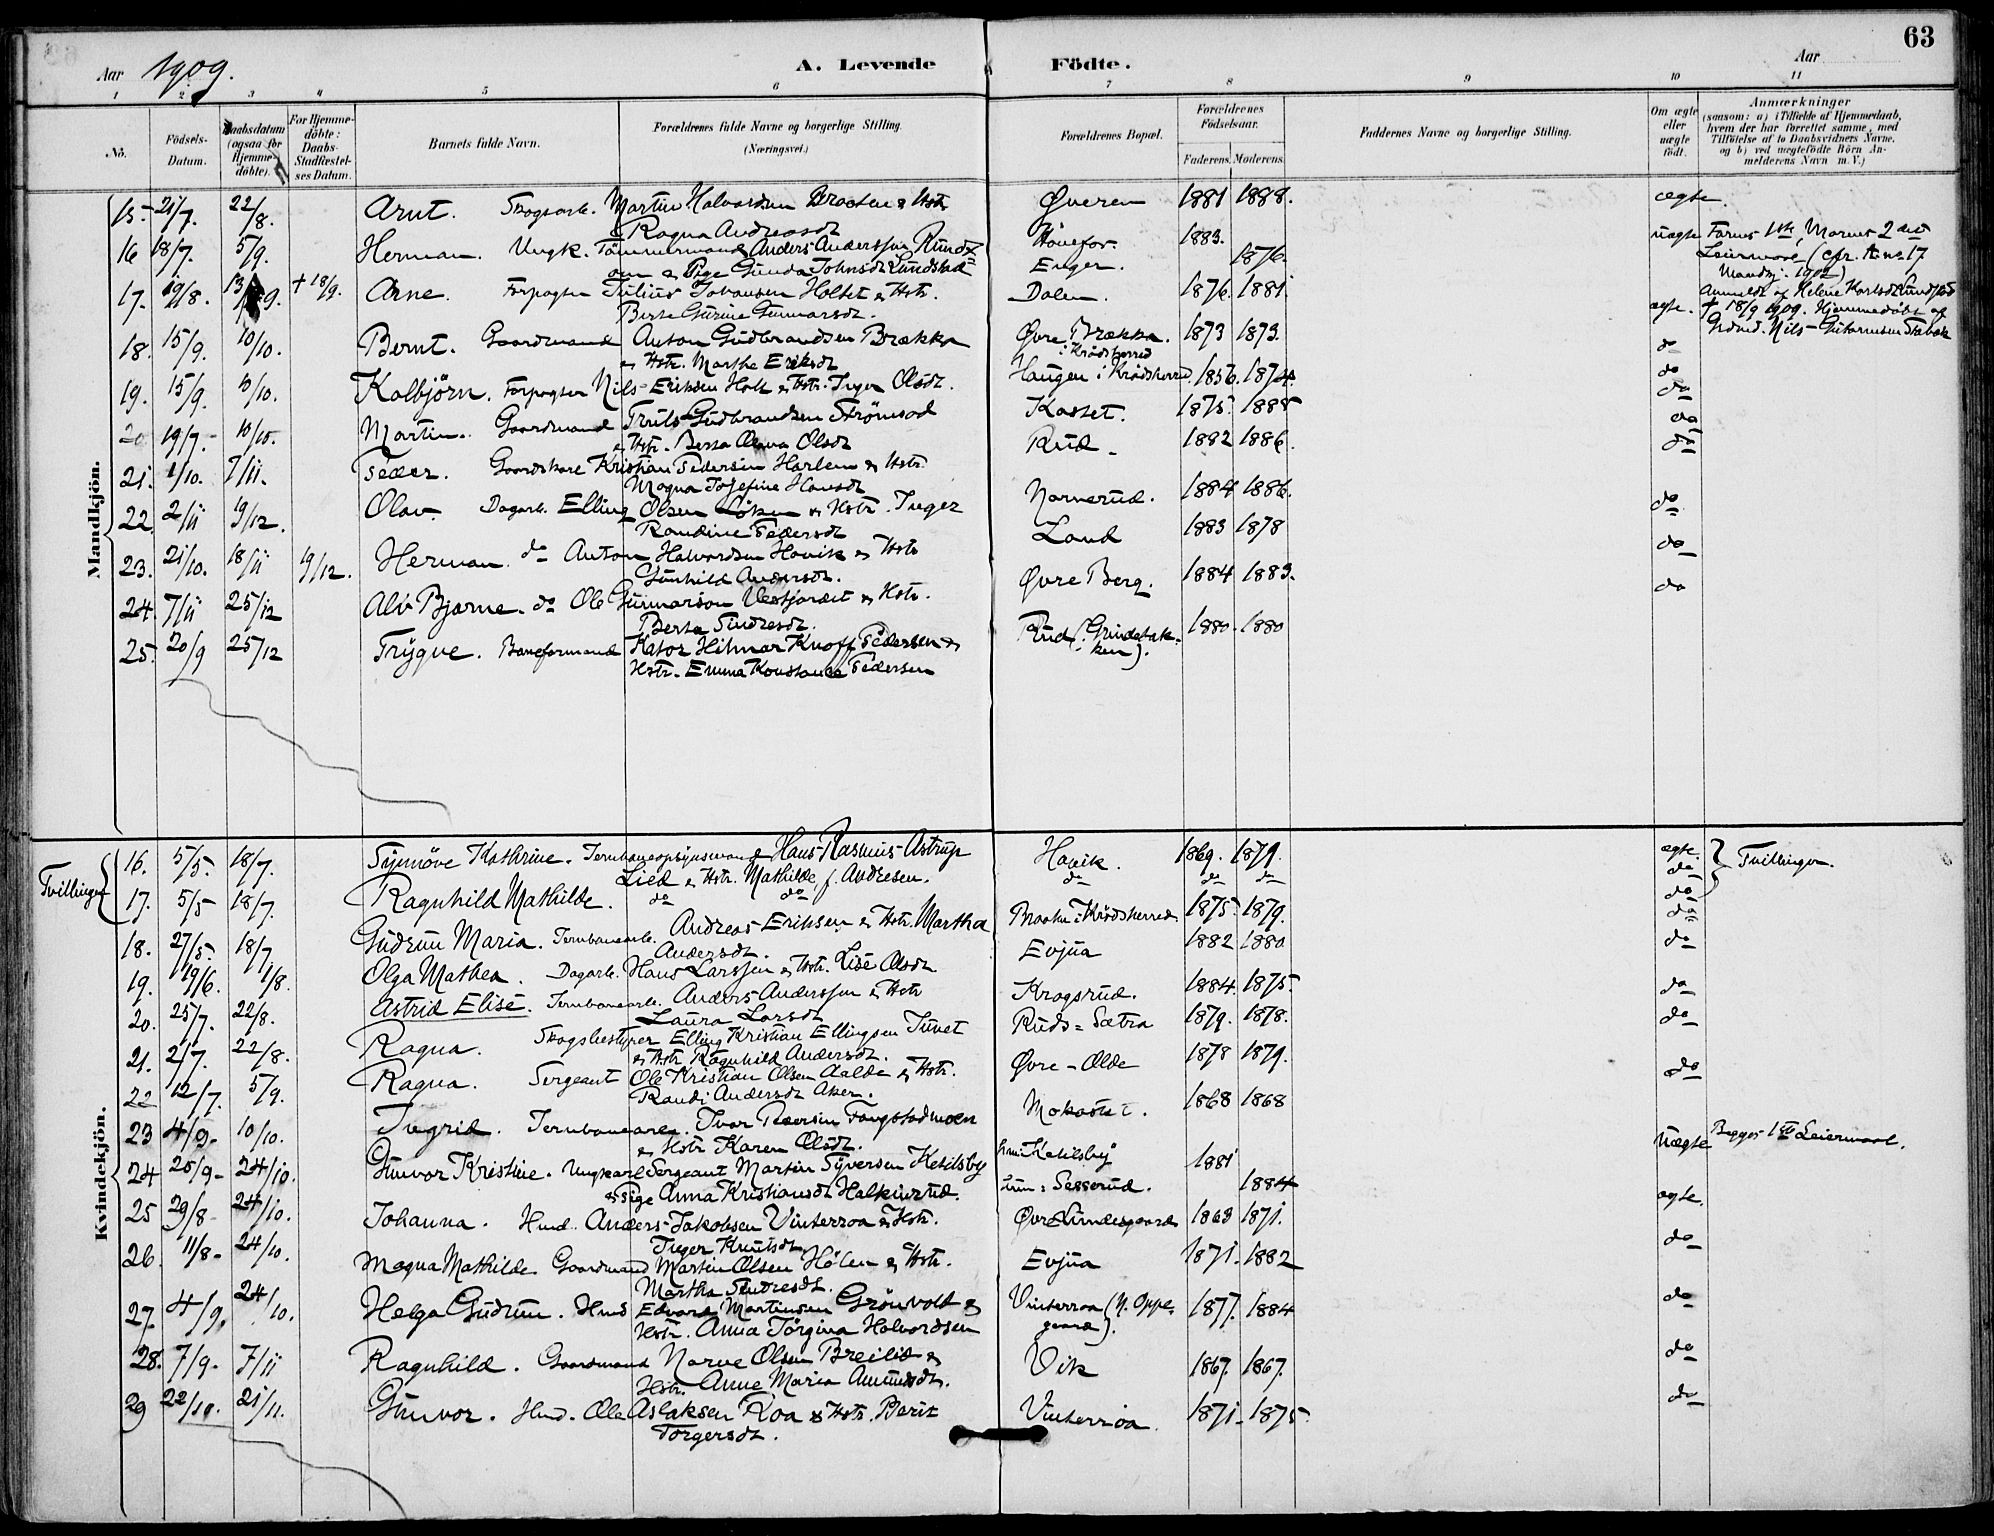 63
Aar 1909.
A. Levende Födte.
Aar
1 2 3 4 5 6 7 8 9 10 11
No.
Födsels-Datum.
Daabsdatum (ogsaa for Hjemmedöbte).
For Hjemmedöbte: Daabs-Stadfæstelses Datum.
Barnets fulde Navn.
Forældrenes fulde Navne og borgerlige Stilling. (Næringsvei.)
Forældrenes Bopæl.
Forældrenes Födselsaar.
Faderens. Moderens.
Faddernes Navne og borgerlige Stilling.
Om ægte eller uægte födt.
Anmærkninger (saasom: a) i Tilfælde af Hjemmedaab, hvem der har forrettet samme, med Tilföielse af to Daabsvidners Navne, og b) ved uægtefödte Börn Anmelderens Navn m. V.)
Mandkjön.
15. 21/7. 22/8. Arnt. Skogsarb. Martin Halvordsen Braaten & Hstr. Øveren 1881 1888. ægte.
Ragna Andreasdt
16 18/7. 5/9. Herman. Ungk. Tömmermand Anders Anderssen Rund= Hönefos 1883. uægte Farens 1ste, Morens 2det
om & Pige Gunda Johnsdt Lundstad Enger. 1876. Leiermaal (cfr. A no 17
Mandkj. 1902)
17. 19/8. 13/9. † 18/9. Arne. Forpagter Julius Johansen Holtet & Hstr. Dalen. 1876. 1881. ægte. Anmeldt af Helene Karlsdt Lundstad
Berte Gurine Gunnarsdt. † 18/9 1909. Hjemmedöbt af
Grdmd. Nils Guttormsen Stabæk
18. 15/9. 10/10. Bernt. Gaardmand Anton Gudbrandsen Brækka Øvre Brækka 1873 1873. do
& Hstr. Marthe Eriksdt i Krödsherred
19. 15/9. 10/10. Kolbjörn. Forpagter Nils Eriksen Holt & Hstr. Inger Olsdt. Haugen i Krödsherred 1856. 1874. do
20 19/7. 10/10. Martin. Gaardmand Truls Gudbrandsen Strömsod Kasset. 1875. 1885 do
& Hstr. Berta Olava Olsdt
21. 1/10. 7/11. Peder. Gaardskarl Kristian Pedersen Harlem & Hstr. Rud 1882 1886. do
Magna Josefine Hansdt
22. 2/11 19/12. Olav. Dagarb. Elling Olsen Löken & Hstr. Inger Narverud. 1884 1886. do
Randine Pedersdt
23. 21/10. 18/11 19/12. Herman. do Anton Halvordsen Havik & Hstr Land 1883 1878 do
Gunhild Andersdt.
24. 7/11 25/12 Alv Bjarne. do Ole Gunnarson Vestjordet & Hstr. Øvre Berg. 1884 1883. do
Berta Sindresdt.
25. 20/9 25/12 Trygve. Baneformand Kator Hilmar Knoff Pedersen & Rud (Grindebak= 1880. 1880
Hstr. Emma Konstanse Pedersen ken).
Kvindekjön.
Tvillinger
16. 5/5. 18/7. Synnöve Kathrine. Jernbaneopsynsmand Hans Rasmus Astrup Havik. 1869. 1879. ægte. Tvillinger
Lied & Hstr. Mathilde f. Andresen.
17. 5/5 18/7. Ragnhild Mathilde. do do do do do do
18. 27/5. 18/7 Gudrun Maria. Jernbanearb. Andreas Eriksen & Hstr. Martha Braaten i Krödsherred 1875. 1879. do
Andersdt.
19. 19/6. 1/8. Olga Mathea. Dagarb. Hans Larssen & Hstr. Lise Olsdt Evjua 1882 1880 do
20. 25/7. 22/8. Astrid Elise. Jernbanearb. Anders Anderssen & Hstr Krogsrud. 1884. 1875. do
Laura Larsdt
21. 2/7. 22/8. Ragna. Skogsbestyrer Elling Kristian Ellingsen Juvet Ruds=Sætra 1879. 1878. do
& Hstr Ragnhild Andersdt.
22 12/7. 5/9. Ragna. Sergeant Ole Kristian Olsen Aalde & Hstr. Øvre-Olde 1878 1879. do
Randi Andersdt Aker.
23 4/9. 10/10. Ingrid. Jernbanearb. Ivar Pedersen Fangstadmoen Mokastet. 1868 1868 do
& Hstr Karen Olsdt.
24 25/9. 24/10. Gunvor Kristine. Ungkarl Sergeant Martin Syversen Ketilsby Ketilsby 1881 uægte Begges 1ste Leiermaal.
& Pige Anna Kristiansdt Halkinrud. Sesserud. 1884
25 29/8 24/10. Johanna. Hmd. Anders Jakobsen Vinterroa & Hstr. Øvre Lindesgaard 1868 1871. ægte.
Inger Knutsdt
26. 11/8. 24/10. Magna Mathilde Gaardmand Martin Olsen Hölen & Hstr. Evjua 1871. 1882 do
Martha Sindresdt.
27. 4/9. 24/10. Helga Gudrun. Hmd Edvard Martinsen Grönvold & Vinterroa (N. Oppe= 1877. 1884 do
Hstr. Anna Jörgina Halvordsen gaard).
28. 7/9. 7/11 Ragnhild. Gaardmand Narve Olsen Breilid & Vik 1867. 1867. do
Hstr. Anne Maria Amundsdt.
29 22/10. 21/11. Gunvor. Hmd. Ole Aslaksen Roa & Hstr. Berit Vinterroa 1871. 1875. do
Torgersdt.